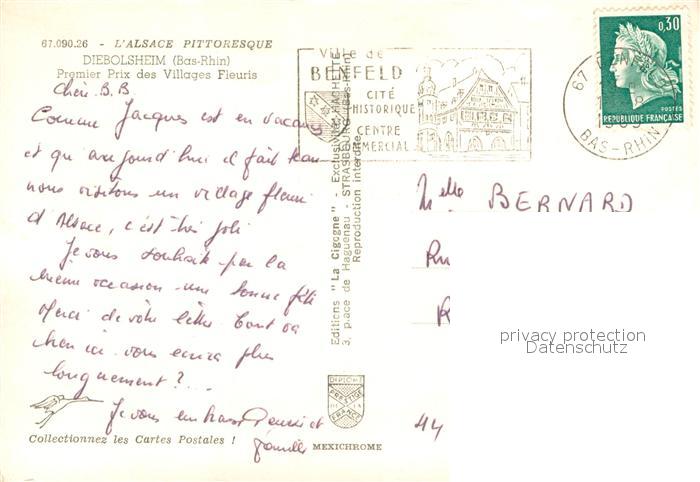 67.090.26 - L'ALSACE PITTORESQUE
DIEBOLSHEIM (Bas-Rhin)
Premier Prix des Villages Fleuris
Chère B.B.
Comme Jacques est en vacances
et qu'aujourd'hui il fait beau
nous visitons un village fleuri
d'Alsace, c'est très joli
Je vous souhaite par la
même occasion une bonne fête
Merci de votre lettre tout va
bien ici. vous écrira plus
longuement ?...
Je vous embrasse
famille
Collectionnez les Cartes Postales !
MEXICHROME
DIPLOME
PRESTIGE
DE LA
FRANCE
Editions "La Cigogne" - Exclusivité HACHETTE
3, place de Haguenau - STRASBOURG (Bas-Rhin)
Reproduction interdite
Ville de
BENFELD
CITÉ
HISTORIQUE
CENTRE
COMMERCIAL
67 BENFELD
BAS-RHIN
0,30
POSTES
REPUBLIQUE FRANÇAISE
Melle BERNARD
Ru
R
44
privacy protection
Datenschutz